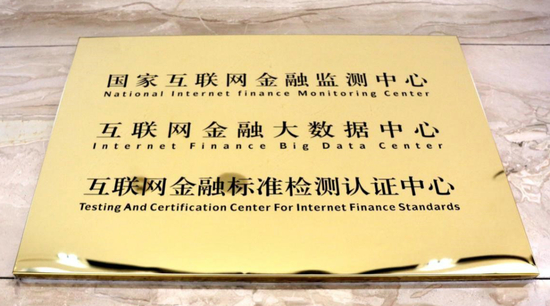 国家互联网金融监测中心
National Internet finance Monitoring Center
互联网金融大数据中心
Internet Finance Big Data Center
互联网金融标准检测认证中心
Testing And Certification Center For Internet Finance Standards